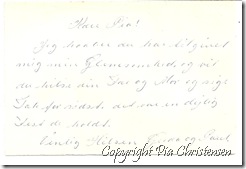 Kære Pia!
Jeg haaber du har tilgivet
mig min Glemsomhed, og vil
du hilse din Far og Mor og sige
Tak for sidst, det var en dejlig
Fest de holdt.
Venlig Hilsen og Poul
Copyright Pia Christensen